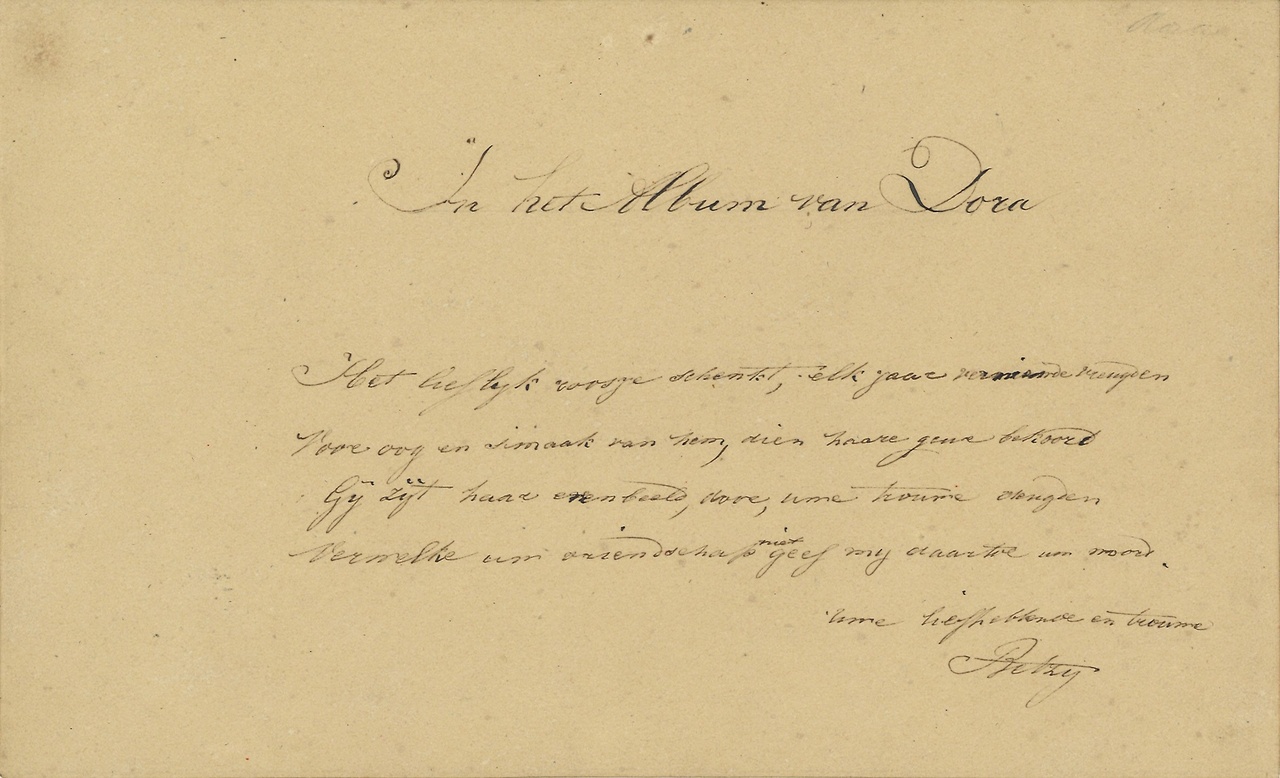 In het Album van Dora
Het lieflyk roosje schenkt, elk jaar vernieuwde vreugden
Voor oog en smaak van hem, dien haare geur bekoord
Gij zijt haar evenbeeld, door, uwe trouwe deugden
Verwelke uw vriendschap niet geef my daartoe uw woord.
uwe liefhebbende en trouwe
Betzy